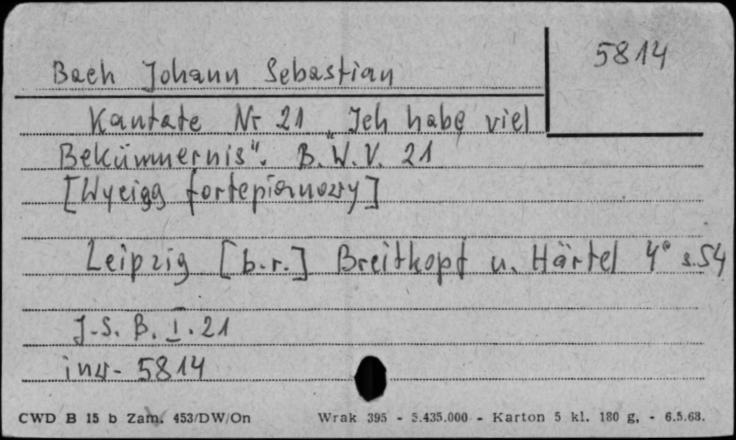 5814
Bach Johann Sebastian
Kantate Nr 21 „Ich habe viel
Bekümmernis". B.W.V. 21
[Wyciąg fortepianowy]
Leipzig [b.r.] Breitkopf u. Härtel 4° s.54
J.S.B. I. 21
inw. 5814
CWD B 15 b Zam. 453/DW/On Wrak 395 - 3.435.000 - Karton 5 kl. 180 g. - 6.5.68.